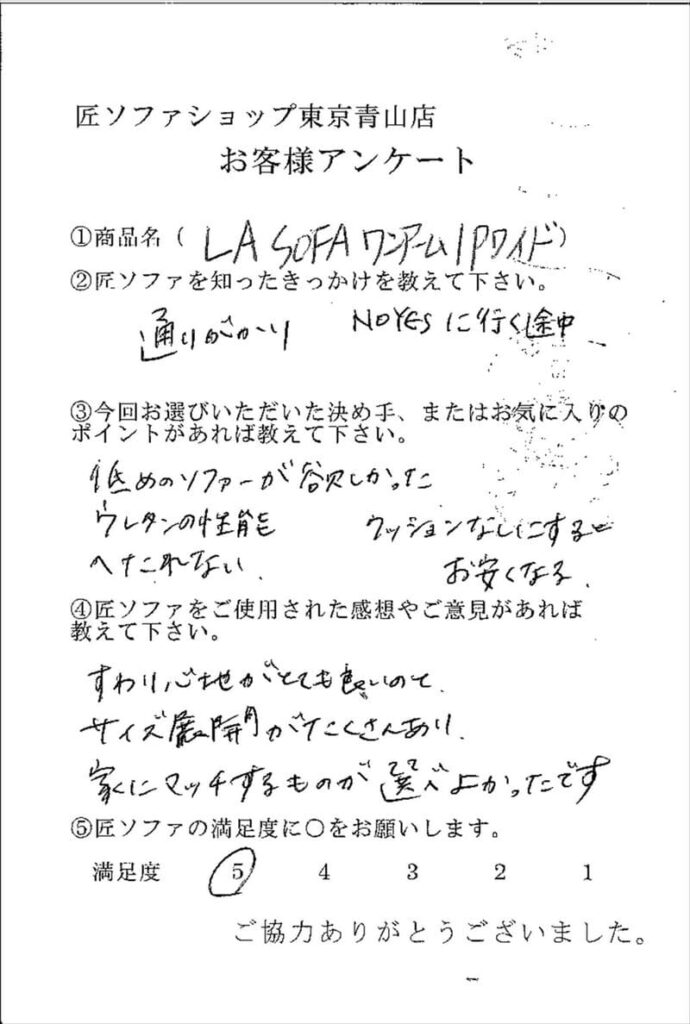 匠ソファショップ東京青山店
お客様アンケート
①商品名（ LA SOFA ワンアーム1Pワイド）
②匠ソファを知ったきっかけを教えて下さい。
通りがかり NOYESに行く途中
③今回お選びいただいた決め手、またはお気に入りの
ポイントがあれば教えて下さい。
低めのソファーが欲しかった
ウレタンの性能 クッションなしにすると
へたれない. お安くなる.
④匠ソファをご使用された感想やご意見があれば
教えて下さい。
すわり心地がとても良いのと、
サイズ展開がたくさんあり、
家にマッチするものが選べよかったです
⑤匠ソファの満足度に〇をお願いします。
満足度 5 4 3 2 1
ご協力ありがとうございました。